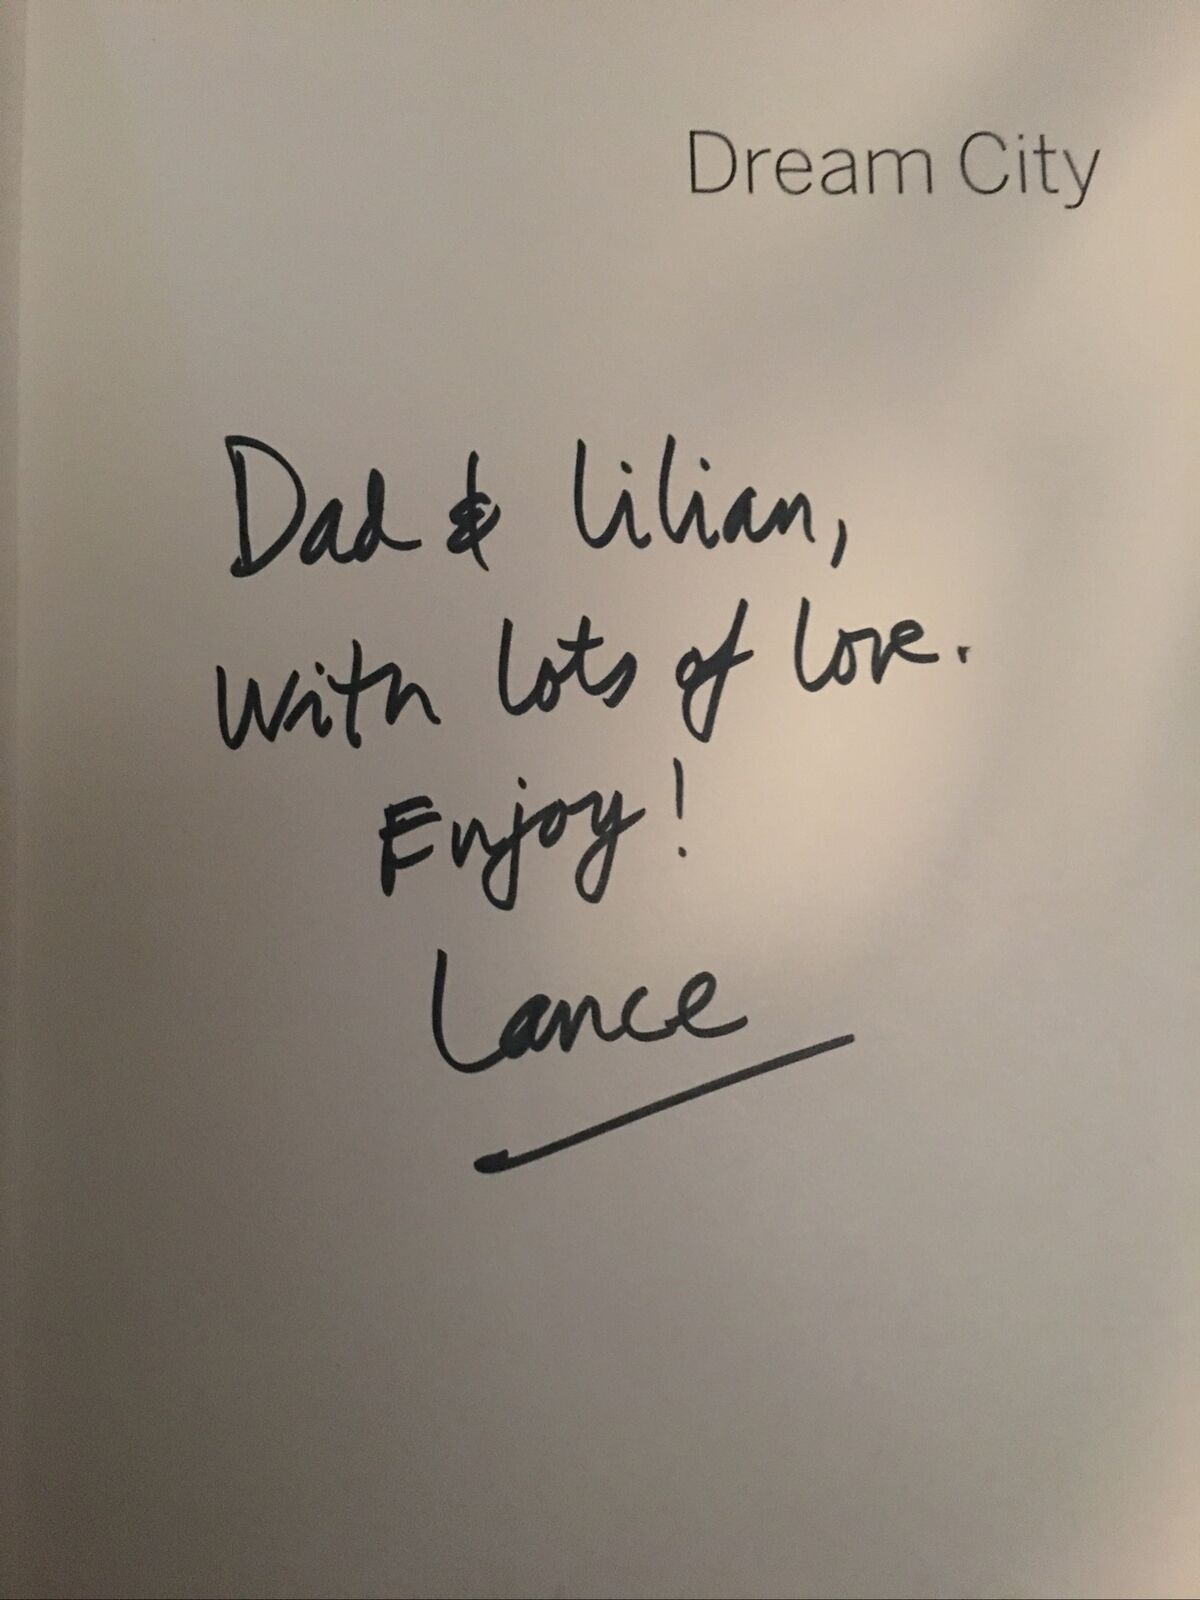 Dream City
Dad & Lilian,
With lots of love.
Enjoy!
Lance